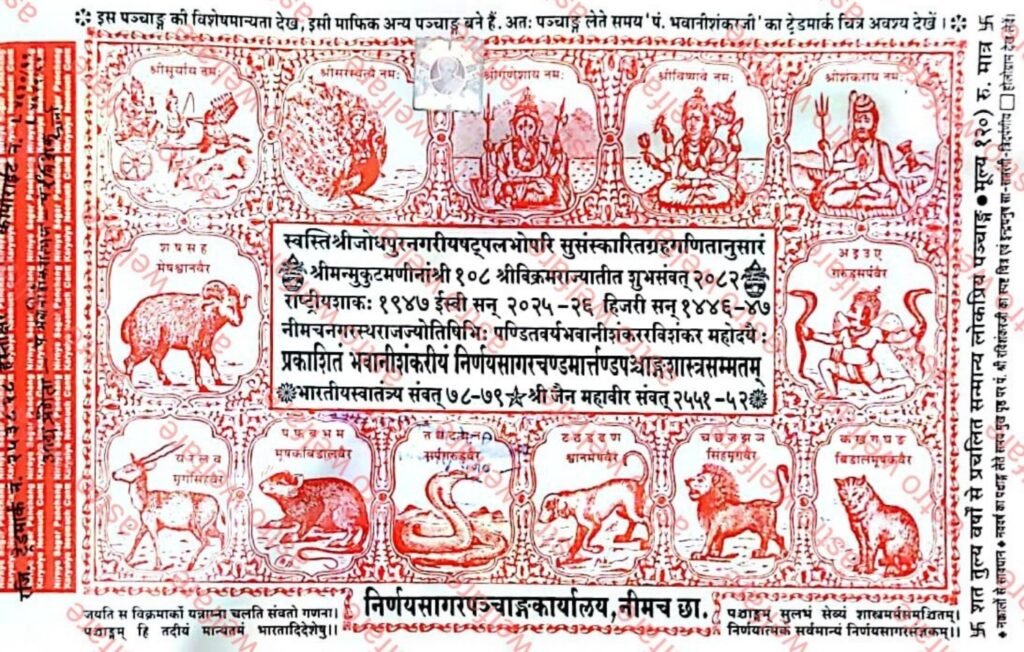 इस पञ्चाङ्ग की विशेषमान्यता देख, इसी माफिक अन्य पञ्चाङ्ग बने हैं. अतः पञ्चाङ्ग लेते समय 'पं. भवानीशंकरजी' का ट्रेडमार्क चित्र अवश्य देखें ।
श्रीसूर्याय नमः
श्रीसरस्वत्यै नमः
श्रीगणेशाय नमः
श्रीविष्णवे नमः
श्रीशंकराय नमः
श ष स ह
मेषश्वानवैर
स्वस्तिश्रीजोधपुरनगरीयषट्पलभोपरि सुसंस्कारितग्रहगणितानुसारं
श्रीमन्मुकुटमणीनांश्री १०८ श्रीविक्रमराज्यातीत शुभसंवत् २०८२
राष्ट्रीयशाकः १९४७ ईस्वी सन् २०२५-२६ हिजरी सन् १४४६-४७
नीमचनगरस्थराजज्योतिषिभिः पण्डितवर्यभवानीशंकररविशंकर महोदयैः
प्रकाशितं भवानीशंकरीयं निर्णयसागरचण्डमार्त्तण्डपञ्चाङ्गंशास्त्रसम्मतम्
भारतीयस्वातंत्र्य संवत् ७८-७९ श्री जैन महावीर संवत् २५५१-५२
अ इ उ ए
गरुडसर्पवैर
य र ल व
मृगसिंहवैर
प फ ब भ म
मूषकबिडालवैर
त थ द ध न
सर्पगरुडवैर
ट ठ ड ढ ण
श्वानमेषवैर
च छ ज झ ञ
सिंहमृगवैर
क ख ग घ ङ
बिडालमूषकवैर
निर्णयसागरपञ्चाङ्गकार्यालय, नीमच छा.
जयति स विक्रमार्को यन्नाम्ना चलति संवतो गणना।
पञ्चाङ्गम् हि तदीयं मान्यतमं भारतादिदेशेषु।।
पञ्चाङ्गम् सुलभं सेव्यं शास्त्रमर्मसमञ्चितम्।
निर्णयात्मकं सर्वमान्यं निर्णयसागरसंज्ञकम्।।
शत तुल्य वर्षों से प्रचलित सन्मान्य लोकप्रिय पञ्चाङ्ग ● मूल्य १२०) रु. मात्र
astrowelfare